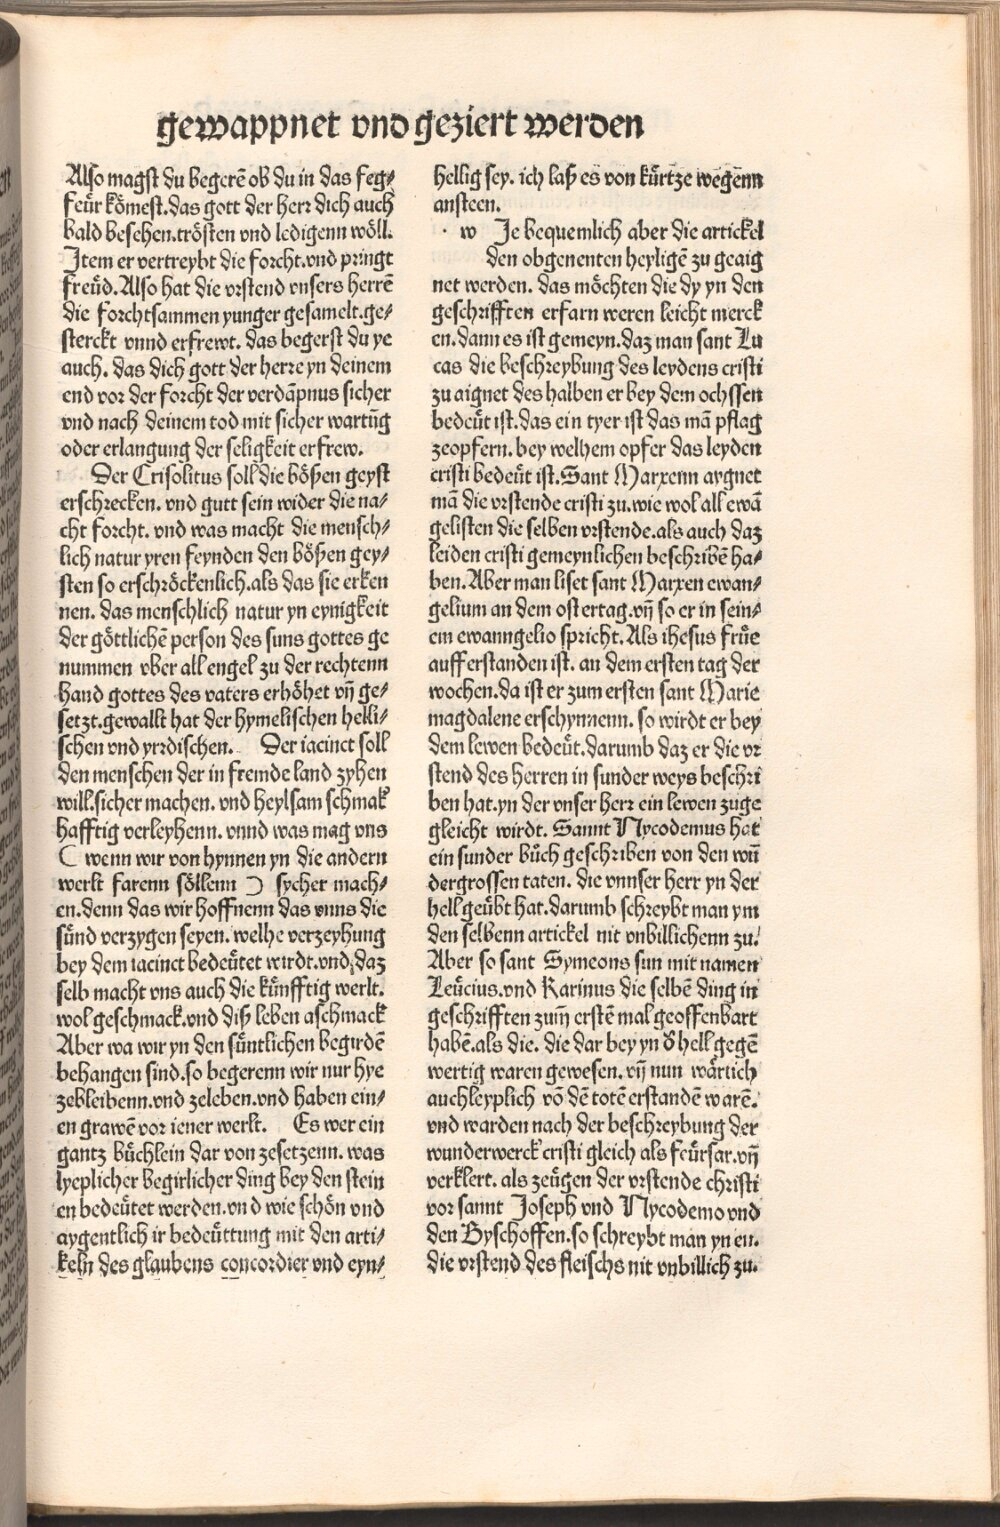 gewappnet vnd geziert werden
Also magst du begerē ob du in das feg⸗
feür kömest.das gott der herr dich auch
bald besehen.trösten vnd ledigenn wöll.
Item er vertreybt die forcht.vnd pringt
freüd.Also hat die vrstend vnsers herrē
die forchtsammen yunger gesamelt.ge⸗
sterckt vnnd erfrewt. das begerst du ye
auch. das dich gott der herre yn deinem
end vor der forcht der verdāpnus sicher
vnd nach deinem tod mit sicher wartūg
oder erlangung der seligkeit erfrew.
Der Crisolitus soll die bößen geyst
erschrecken. vnd gutt sein wider die na⸗
cht forcht. vnd was macht die mensch⸗
lich natur yren feynden den bößen gey⸗
sten so erschröckenlich.als das sie erken
nen. das menschlich natur yn eynigkeit
der göttlichē person des suns gottes ge
nummen vber all engel zu der rechtenn
hand gottes des vaters erhöhet vn̄ ge⸗
setzt.gewallt hat der hymelischen helli⸗
schen vnd yrrdischen. Der iacinct soll
den menschen der in fremde land zyhen
will.sicher machen. vnd heylsam schmak
hafftig verleyhenn. vnnd was mag vns
( wenn wir von hynnen yn die andern
werlt farenn söllenn ) sycher mach⸗
en.denn das wir hoffnenn das vnns die
sünd verzygen seyen. welhe verzeyhung
bey dem iacinct bedeütet wirdt.vnd daz
selb macht vns auch die künfftig werlt.
wol geschmack.vnd diß leben aschmack
Aber wa wir yn den süntlichen begirdē
behangen sind.so begerenn wir nur hye
zebleibenn.vnd zeleben.vnd haben ein⸗
en grawē vor iener werlt. Es wer ein
gantz büchlein dar von zesetzenn. was
lyeplicher begirlicher ding bey den stein
en bedeütet werden.vnd wie schön vnd
aygentlich ir bedeüttung mit den arti⸗
keln des glaubens concordier vnd eyn⸗
hellig sey. ich laß es von kürtze wegenn
ansteen.
· w Je bequemlich aber die artickel
den obgenenten heyligē zu geaig
net werden. das möchten die dy yn den
geschrifften erfarn weren leicht merck
en.dann es ist gemeyn.daz man sant Lu
cas die beschreybung des leydens cristi
zu aignet des halben er bey dem ochssen
bedeüt ist.das ein tyer ist das mā pflag
zeopfern. bey welhem opfer das leyden
cristi bedeüt ist.Sant Marxenn aygnet
mā die vrstende cristi zu.wie wol all ewā
gelisten die selben vrstende.als auch daz
leiden cristi gemeynlichen beschribē ha⸗
ben.Aber man liset sant Marxen ewan⸗
gelium an dem ostertag.vn̄ so er in sein⸗
em ewanngelio spricht.Als ihesus früe
aufferstanden ist. an dem ersten tag der
wochen.da ist er zum ersten sant Marie
magdalene erschynnenn. so wirdt er bey
dem lewen bedeüt.darumb daz er die vr
stend des herren in sunder weys beschri
ben hat.yn der vnser herr ein lewen zuge
gleicht wirdt. Sannt Nycodemus hat
ein sunder büch geschriben von den wū
dergrossen taten. die vnnser herr yn der
hell geübt hat.darumb schreybt man ym
den selbenn artickel nit vnbillichenn zu.
Aber so sant Symeons sun mit namen
Leücius.vnd Karinus die selbē ding in
geschrifften zum̄ erstē mal geoffenbart
habē.als die. die dar bey yn d̄ hell gegē
wertig waren gewesen. vn̄ nun wärlich
auch leyplich vō dē totē erstandē warē.
vnd warden nach der beschreybung der
wunderwerck cristi gleich als feürfar.vn̄
verklert. als zeügen der vrstende christi
vor sannt Joseph vnd Nycodemo vnd
den Byschoffen.so schreybt man yn en.
die vrstend des fleischs nit vnbillich zu.